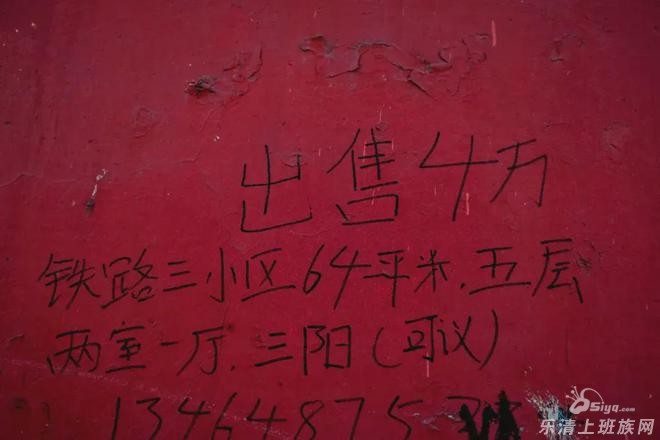 出售4万
铁路三小区64平米.五层
两室一厅.三阳(可议)
134648753
Osiyq.com
乐清上班族网